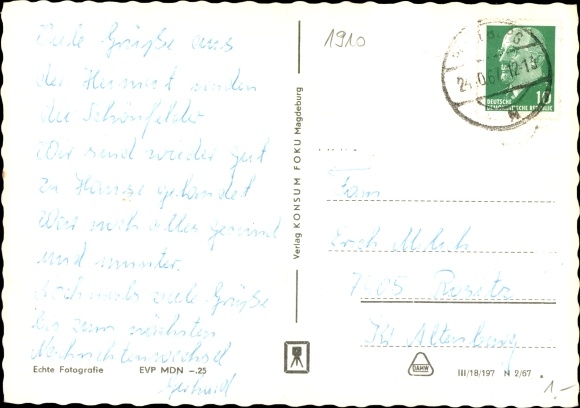 Viele Grüße aus
der Heimat senden
die Schönfelder
Wir sind wieder gut
zu Hause gelandet
War noch alles gesund
und munter.
Nochmals viele Grüße
bis zum nächsten
Nachrichtenwechsel
Echte Fotografie EVP MDN –.25
Verlag KONSUM FOKU Magdeburg
1910
24. 67.12-13
DEUTSCHE
DEMOKRATISCHE REPUBLIK
10
Fam
Erich
7405 Rositz
Kr Altenburg
DAMW
III/18/197 N 2/67
1.-